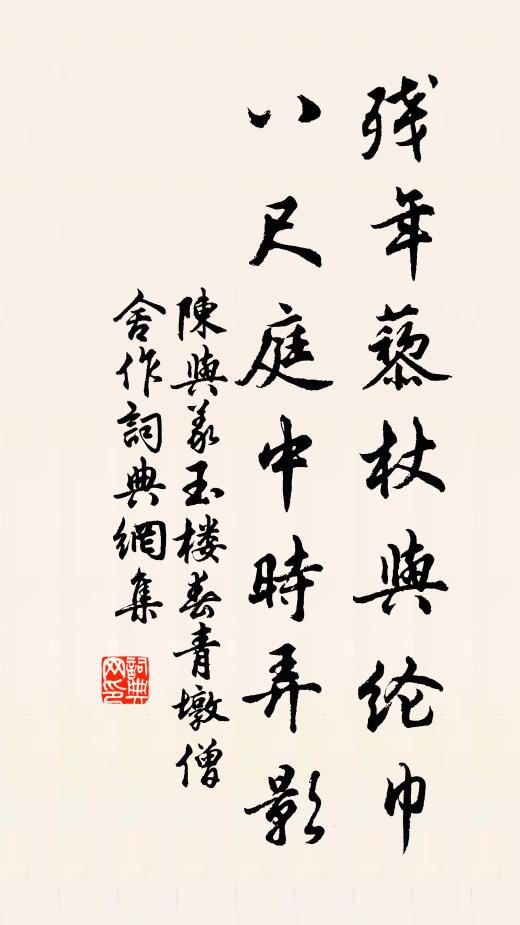 残年藜杖與纶巾
八尺庭中時弄影
陳與义玉楼春青墩僧
舍作詞典網集
詞典网印